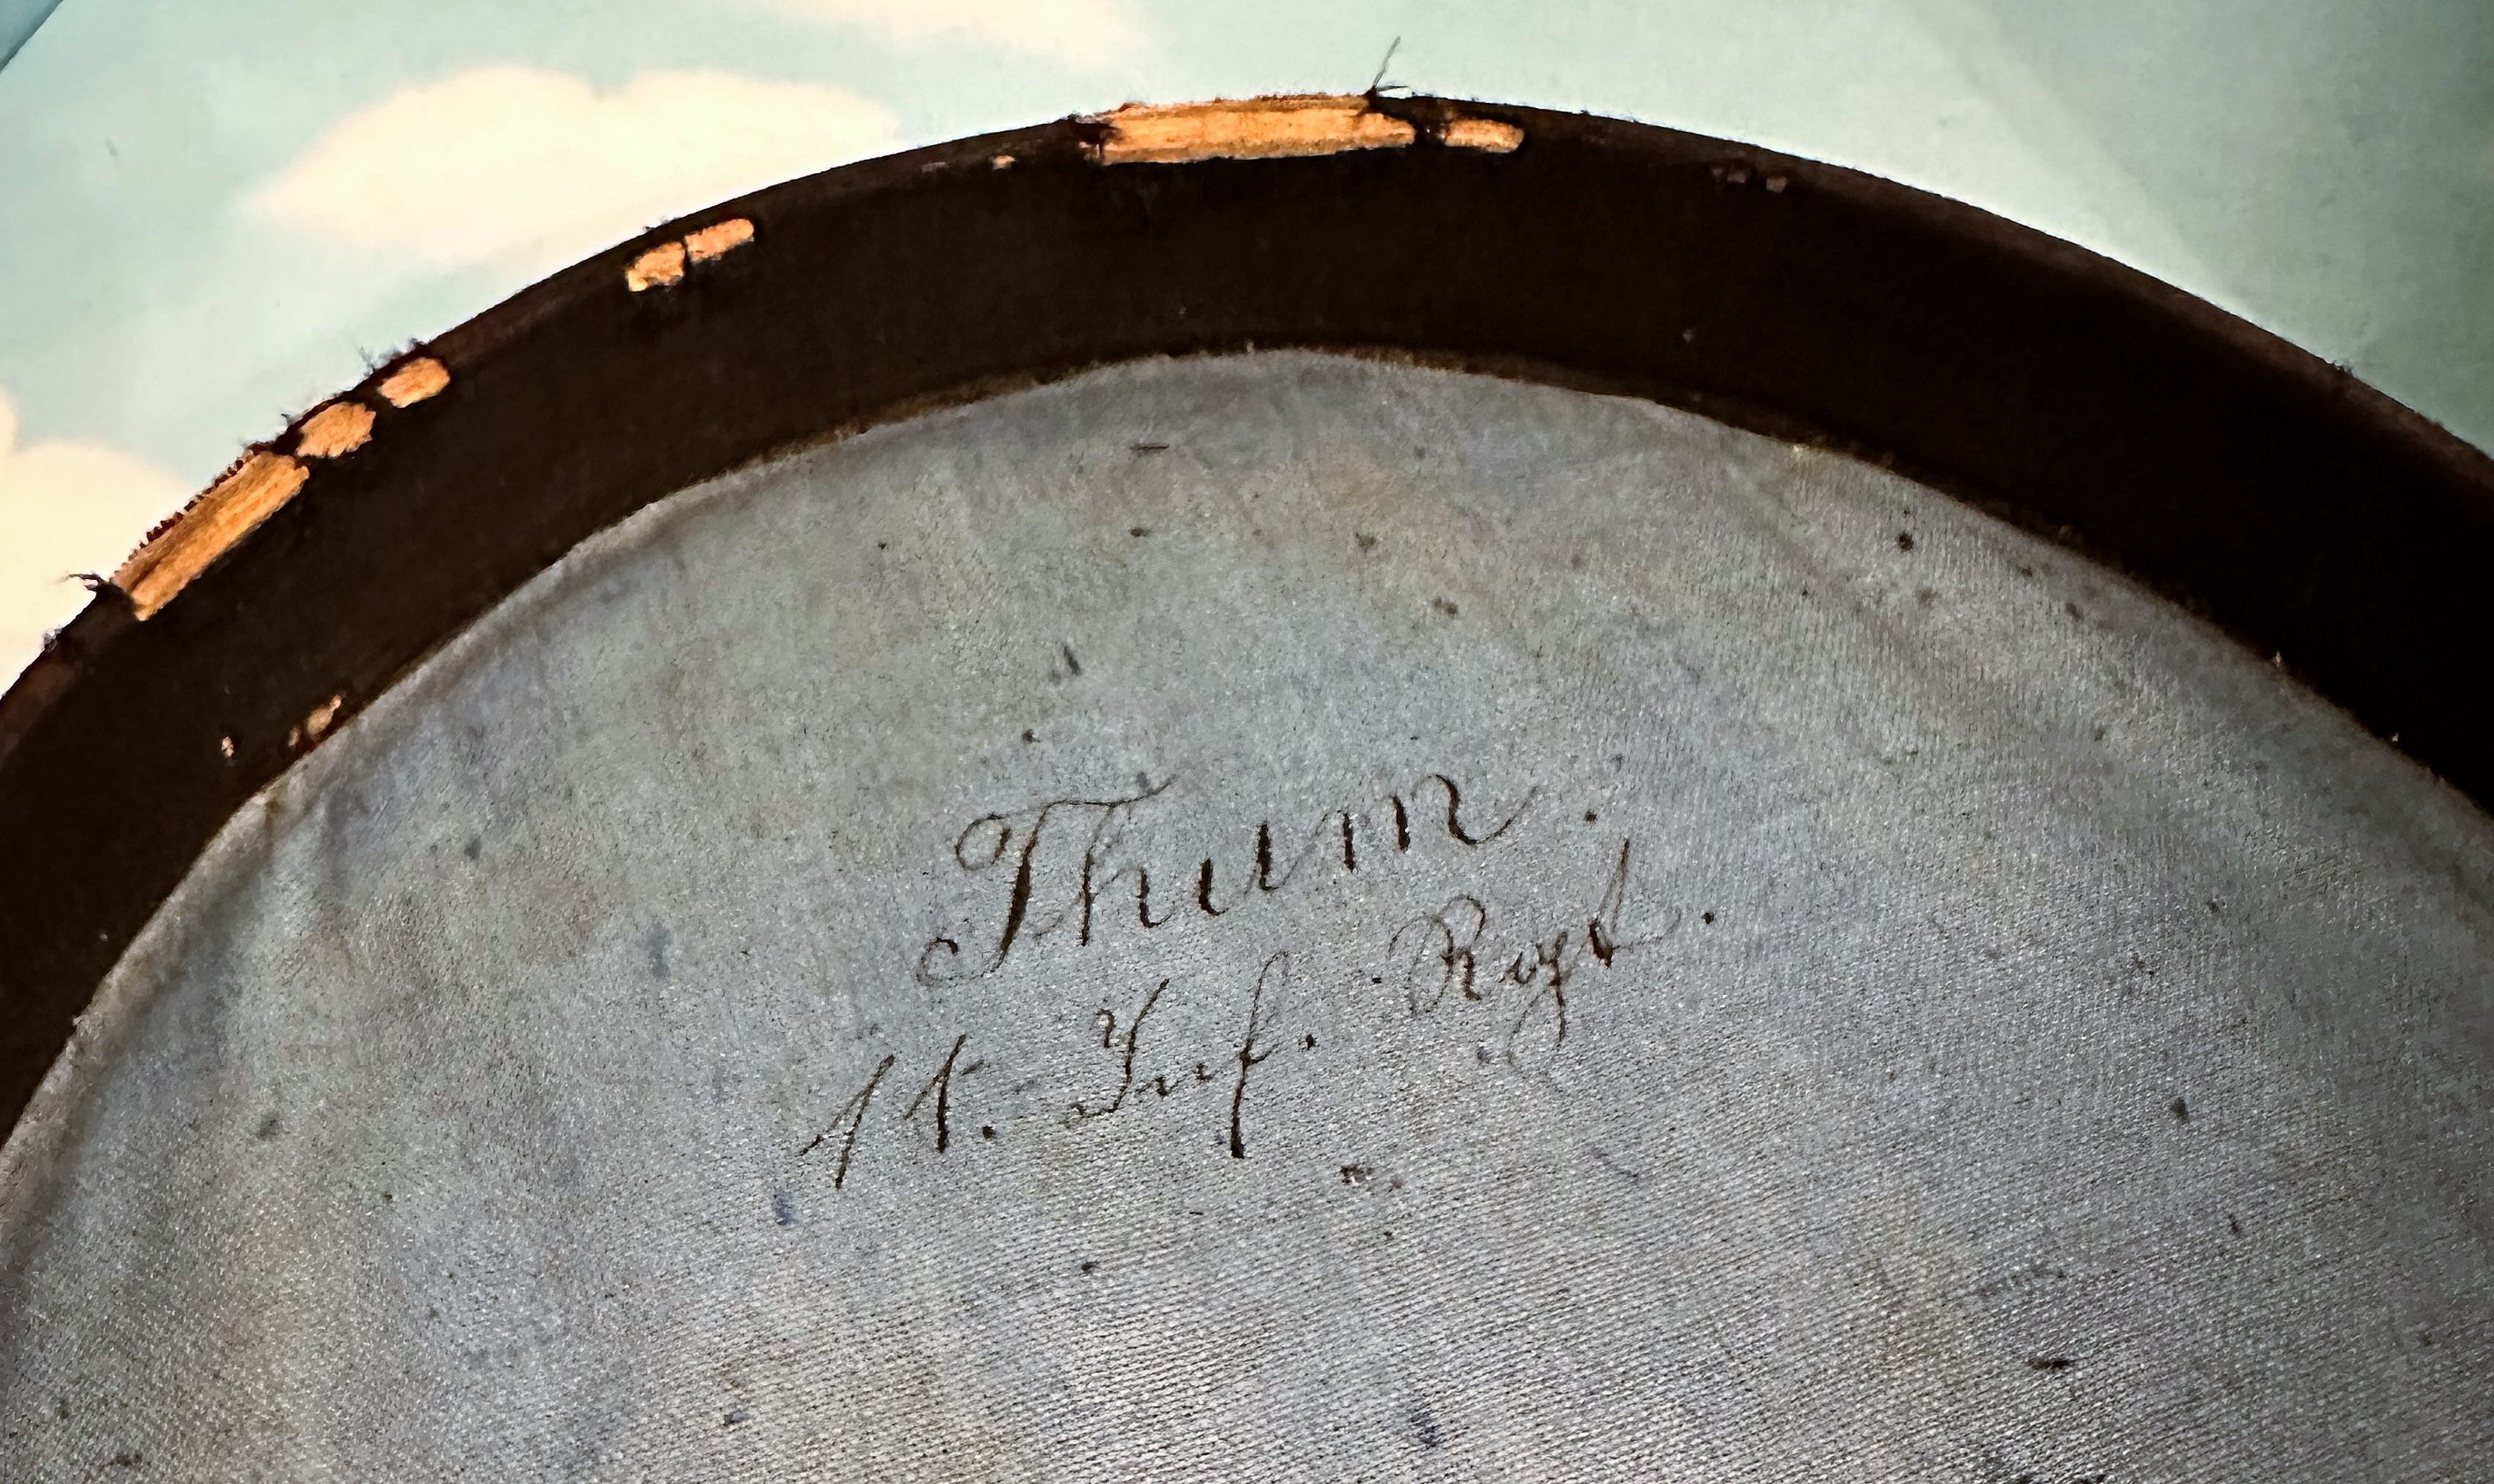 Thum .
11. Inf. Rgt.